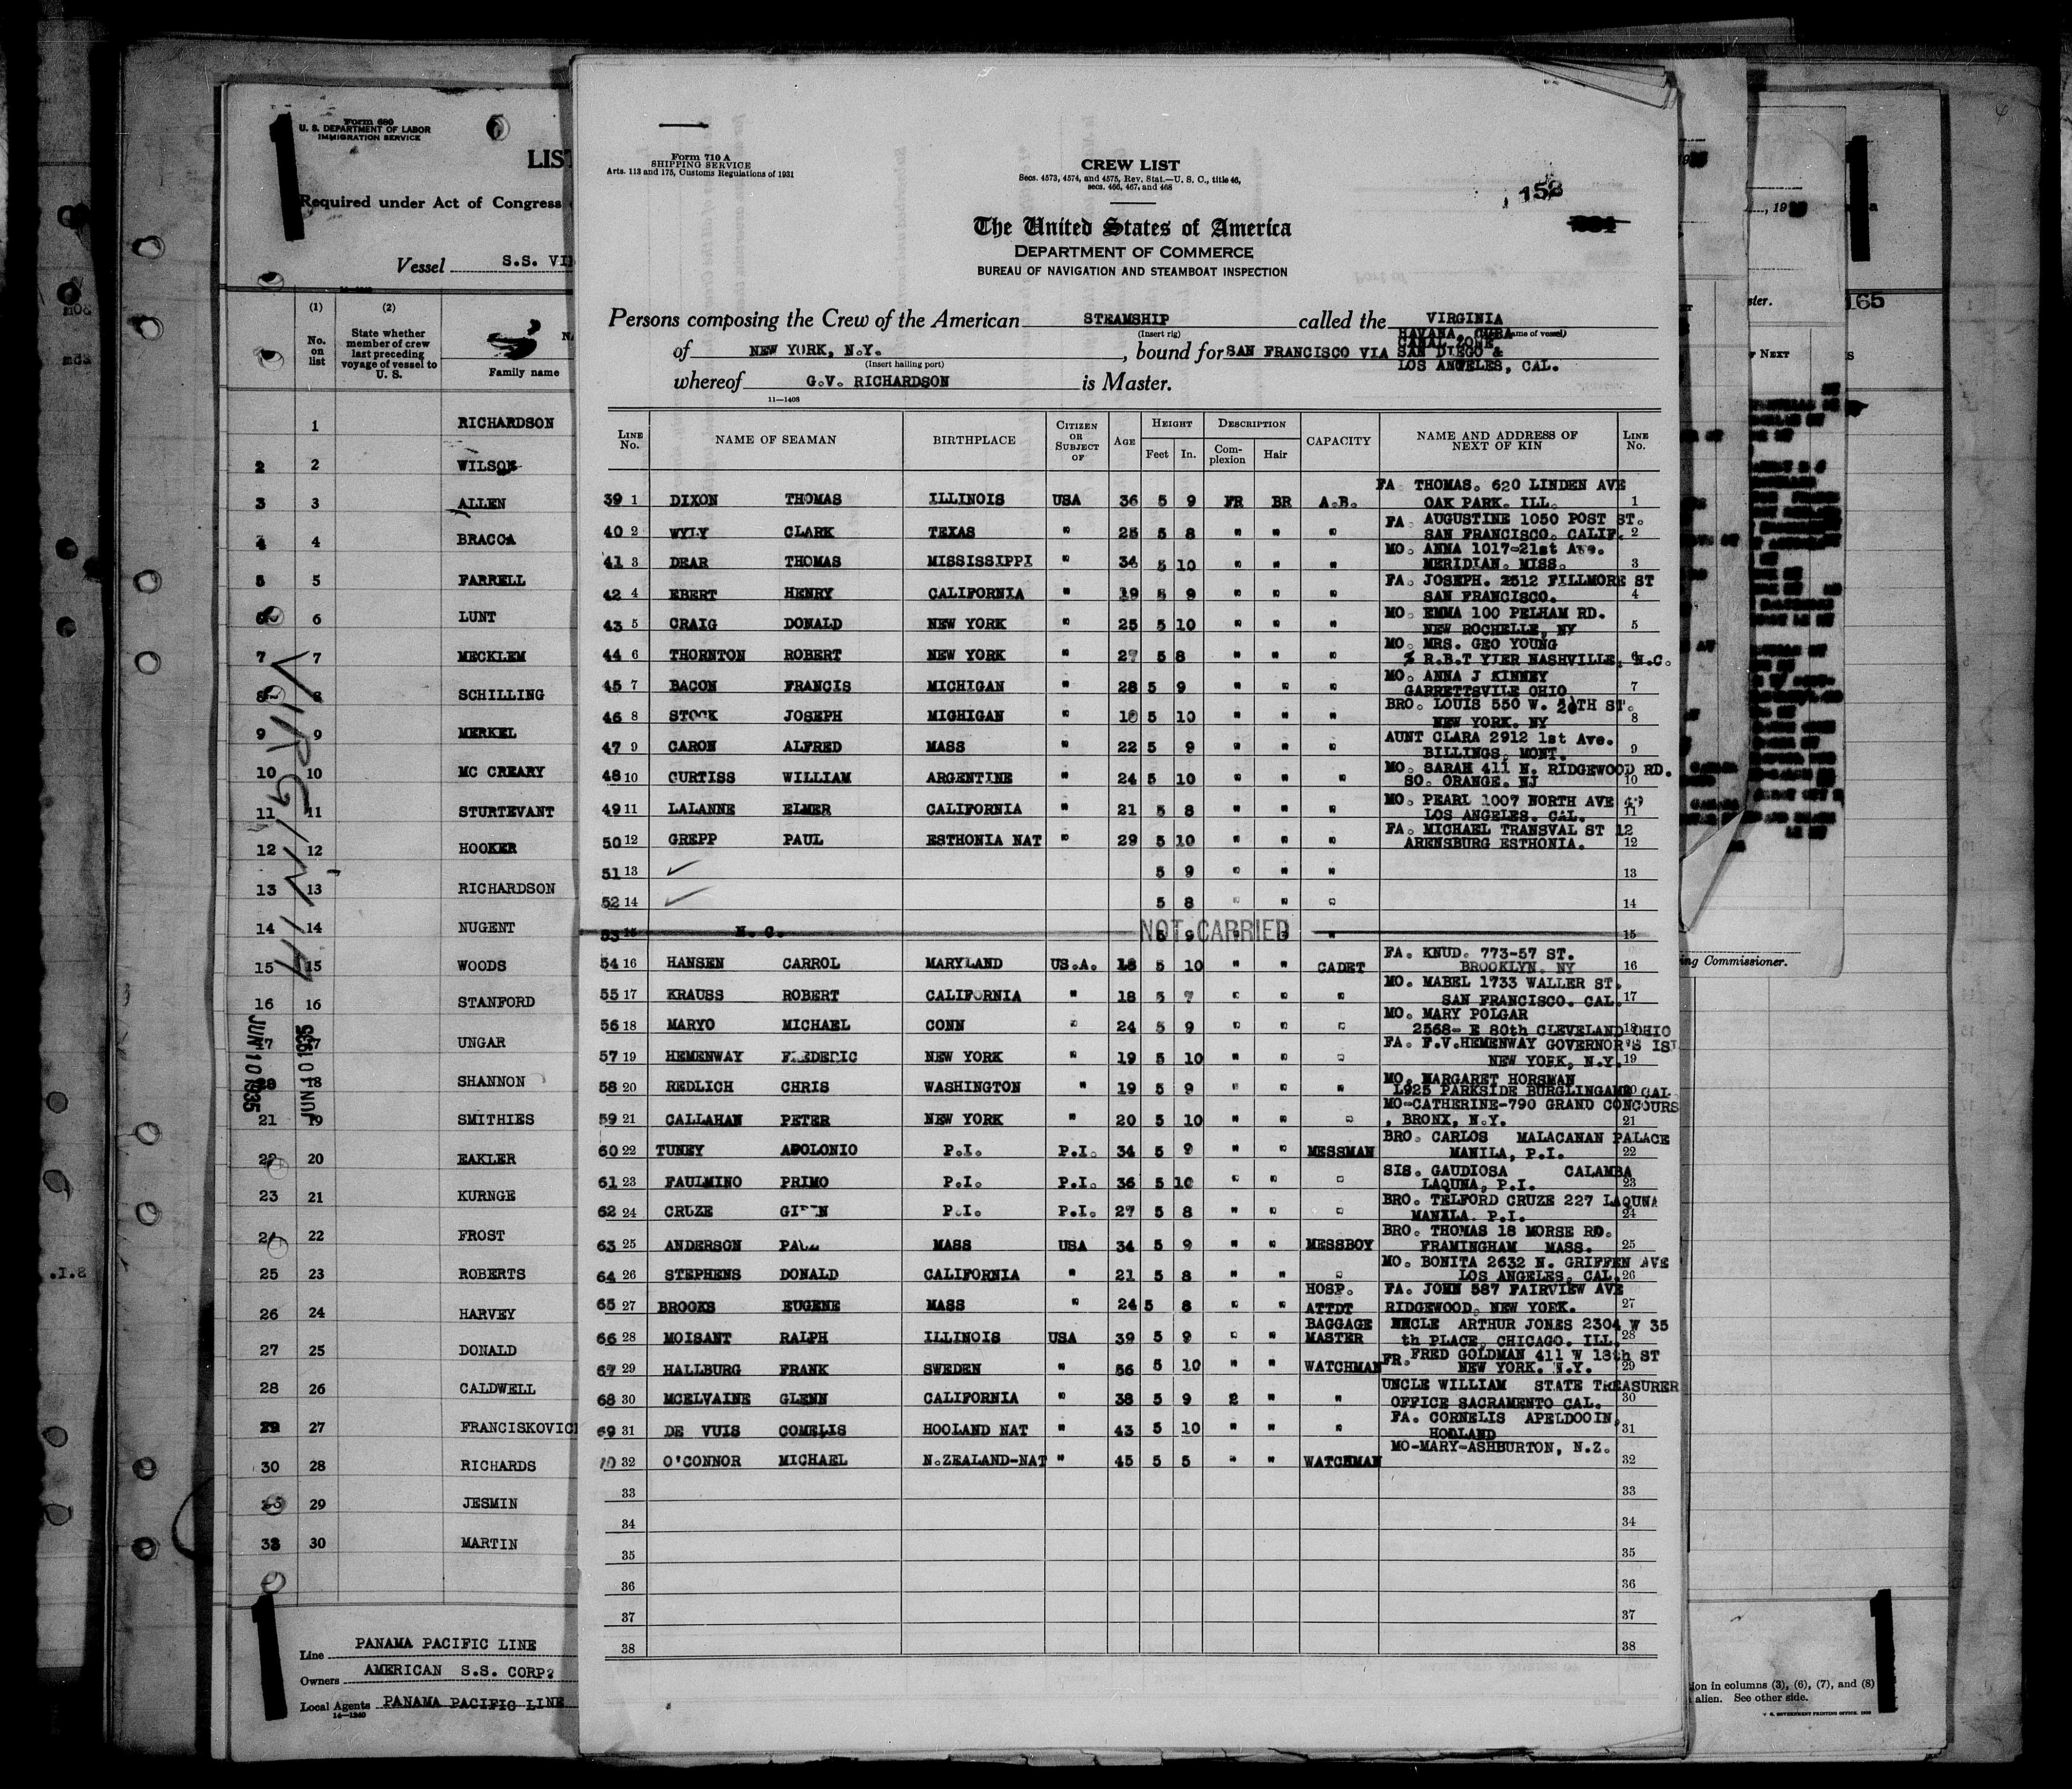 Form 680
U. S. DEPARTMENT OF LABOR
IMMIGRATION SERVICE
6
LIST
Required under Act of Congress
Vessel S.S. VI
(1) (2)
No. on list
State whether member of crew last preceding voyage of vessel to U. S.
Family name
1 RICHARDSON
2 2 WILSON
3 3 ALLEN
4 4 BRACCA
5 5 FARRELL
6 6 LUNT
7 7 MECKLEM
8 8 SCHILLING
9 9 MERKEL
10 10 MC CREARY
11 11 STURTEVANT
12 12 HOOKER
13 13 RICHARDSON
14 14 NUGENT
15 15 WOODS
16 16 STANFORD
17 UNGAR
18 SHANNON
21 19 SMITHIES
22 20 EAKLER
23 21 KURNGE
24 22 FROST
25 23 ROBERTS
26 24 HARVEY
27 25 DONALD
28 26 CALDWELL
29 27 FRANCISKOVIC
30 28 RICHARDS
29 JESMIN
30 MARTIN
VIRGINIA
JUN 10 1935
JUN 10 1935
Line PANAMA PACIFIC LINE
Owners AMERICAN S.S. CORP.
Local Agents PANAMA PACIFIC LINE
14—1240
Form 710 A
SHIPPING SERVICE
Arts. 113 and 175, Customs Regulations of 1931
CREW LIST
Secs. 4573, 4574, and 4575, Rev. Stat.—U. S. C., title 46,
secs. 466, 467, and 468
158
The United States of America
DEPARTMENT OF COMMERCE
BUREAU OF NAVIGATION AND STEAMBOAT INSPECTION
Persons composing the Crew of the American STEAMSHIP called the VIRGINIA
(Insert rig) HAVANA, CUBA
CANAL ZONE
of NEW YORK, N.Y. , bound for SAN FRANCISCO VIA SAN DIEGO &
(Insert hailing port) LOS ANGELES, CAL.
whereof G.V. RICHARDSON is Master.
11—1408
LINE No. NAME OF SEAMAN BIRTHPLACE CITIZEN OR SUBJECT OF AGE HEIGHT Feet In. DESCRIPTION Complexion Hair CAPACITY NAME AND ADDRESS OF NEXT OF KIN LINE No.
39 1 DIXON THOMAS ILLINOIS USA 36 5 9 FR BR A.B. FA THOMAS. 620 LINDEN AVE
OAK PARK. ILL. 1
40 2 WYLY CLARK TEXAS " 25 5 8 " " " FA. AUGUSTINE 1050 POST ST.
SAN FRANCISCO. CALIF. 2
41 3 DEAR THOMAS MISSISSIPPI " 34 5 10 " " " MO. ANNA 1017-21st Ave.
MERIDIAN. MISS. 3
42 4 EBERT HENRY CALIFORNIA " 19 5 9 " " " FA. JOSEPH. 2512 FILLMORE ST
SAN FRANCISCO. 4
43 5 CRAIG DONALD NEW YORK " 25 5 10 " " " MO. EMMA 100 PELHAM RD.
NEW ROCHELLE, NY 5
44 6 THORNTON ROBERT NEW YORK " 27 5 8 " " " MO. MRS. GEO YOUNG
% R.B.T YJER NASHVILLE, N.C. 6
45 7 BACON FRANCIS MICHIGAN " 28 5 9 " " " MO. ANNA J KINNEY
GARRETTSVILE OHIO 7
46 8 STOCK JOSEPH MIGHIGAN " 5 10 " " " BRO. LOUIS 550 W. TH ST.
NEW YORK. NY 8
47 9 CARON ALFRED MASS " 22 5 9 " " " AUNT CLARA 2912 1st Ave.
BILLINGS, MONT. 9
48 10 CURTISS WILLIAM ARGENTINE " 24 5 10 " " " MO. SARAH 411 N. RIDGEWOOD RD.
SO. ORANGE. NJ 10
49 11 LALANNE ELMER CALIFORNIA " 21 5 8 " " " MO. PEARL 1007 NORTH AVE
LOS ANGELES. CAL. 11
50 12 GREPP PAUL ESTHONIA NAT " 29 5 10 " " " FA. MICHAEL TRANSVAL ST 12
ARENSBURG ESTHONIA. 12
51 13 5 9 " " " 13
52 14 5 8 " " " 14
53 15 N. C. NOT CARRIED 5 9 " " " 15
54 16 HANSEN CARROL MARYLAND US.A. 18 5 10 " " CADET FA. KNUD. 773-57 ST.
BROOKLYN. NY 16
55 17 KRAUSS ROBERT CALIFORNIA " 18 5 7 " " " MO. MABEL 1733 WALLER ST.
SAN FRANCISCO. CAL. 17
56 18 MARYO MICHAEL CONN " 24 5 9 " " " MO. MARY POLGAR
2568- E 80th CLEVELAND OHIO 18
57 19 HEMENWAY FREDERIC NEW YORK " 19 5 10 " " " FA. F.V.HEMENWAY GOVERNOR'S IS
NEW YORK, N.Y. 19
58 20 REDLICH CHRIS WASHINGTON " 19 5 9 " " " MO. MARGARET HORSMAN
1925 PARKSIDE BURGLINGAME CAL. 20
59 21 CALLAHAN PETER NEW YORK " 20 5 10 " " " MO-CATHERINE-790 GRAND CONCOURS
, BRONX, N.Y. 21
60 22 TUNEY APOLONIO P.I. P.I. 34 5 9 " " MESSMAN BRO. CARLOS MALACANAN PALACE
MANILA, P.I. 22
61 23 FAULMINO PRIMO P.I. P.I. 36 5 10 " " " SIS. GAUDIOSA CALAMBA
LAQUNA, P.I. 23
62 24 CRUZE P.I. P.I. 27 5 8 " " " BRO. TELFORD CRUZE 227 LAQUNA
MANILA. P.I. 24
63 25 ANDERSON PAUL MASS USA 34 5 9 " " MESSBOY BRO. THOMAS 18 MORSE RD.
FRAMINGHAM MASS. 25
64 26 STEPHENS DONALD CALIFORNIA " 21 5 8 " " " MO. BONITA 2632 N. GRIFFEN AVE
LOS ANGELES, CAL. 26
65 27 BROOKS EUGENE MASS " 24 5 8 " " HOSP. ATTDT FA. JOHN 587 FAIRVIEW AVE
RIDGEWOOD, NEW YORK. 27
66 28 MOISANT RALPH ILLINOIS USA 39 5 9 " " BAGGAGE MASTER UNCLE ARTHUR JONES 2304 W 35
th PLACE, CHICAGO. ILL. 28
67 29 HALLBURG FRANK SWEDEN " 56 5 10 " " WATCHMAN FR. FRED GOLDMAN 411 W 13th ST
NEW YORK. N.Y. 29
68 30 MCELVAINE GLENN CALIFORNIA " 38 5 9 2 " " UNCLE WILLIAM STATE TREASURER
OFFICE SACRAMENTO CAL. 30
69 31 DE VUIS COMELIS HOOLAND NAT " 43 5 10 " " " FA. CORNELIS APELDOOIN,
HOOLAND 31
70 32 O'CONNOR MICHAEL N.ZEALAND-NAT " 45 5 5 " " WATCHMAN MO-MARY-ASHBURTON, N.Z. 32
33 33
34 34
35 35
36 36
37 37
38 38
165
NEXT
ing Commissioner.
ion in columns (3), (6), (7), and (8)
alien. See other side.